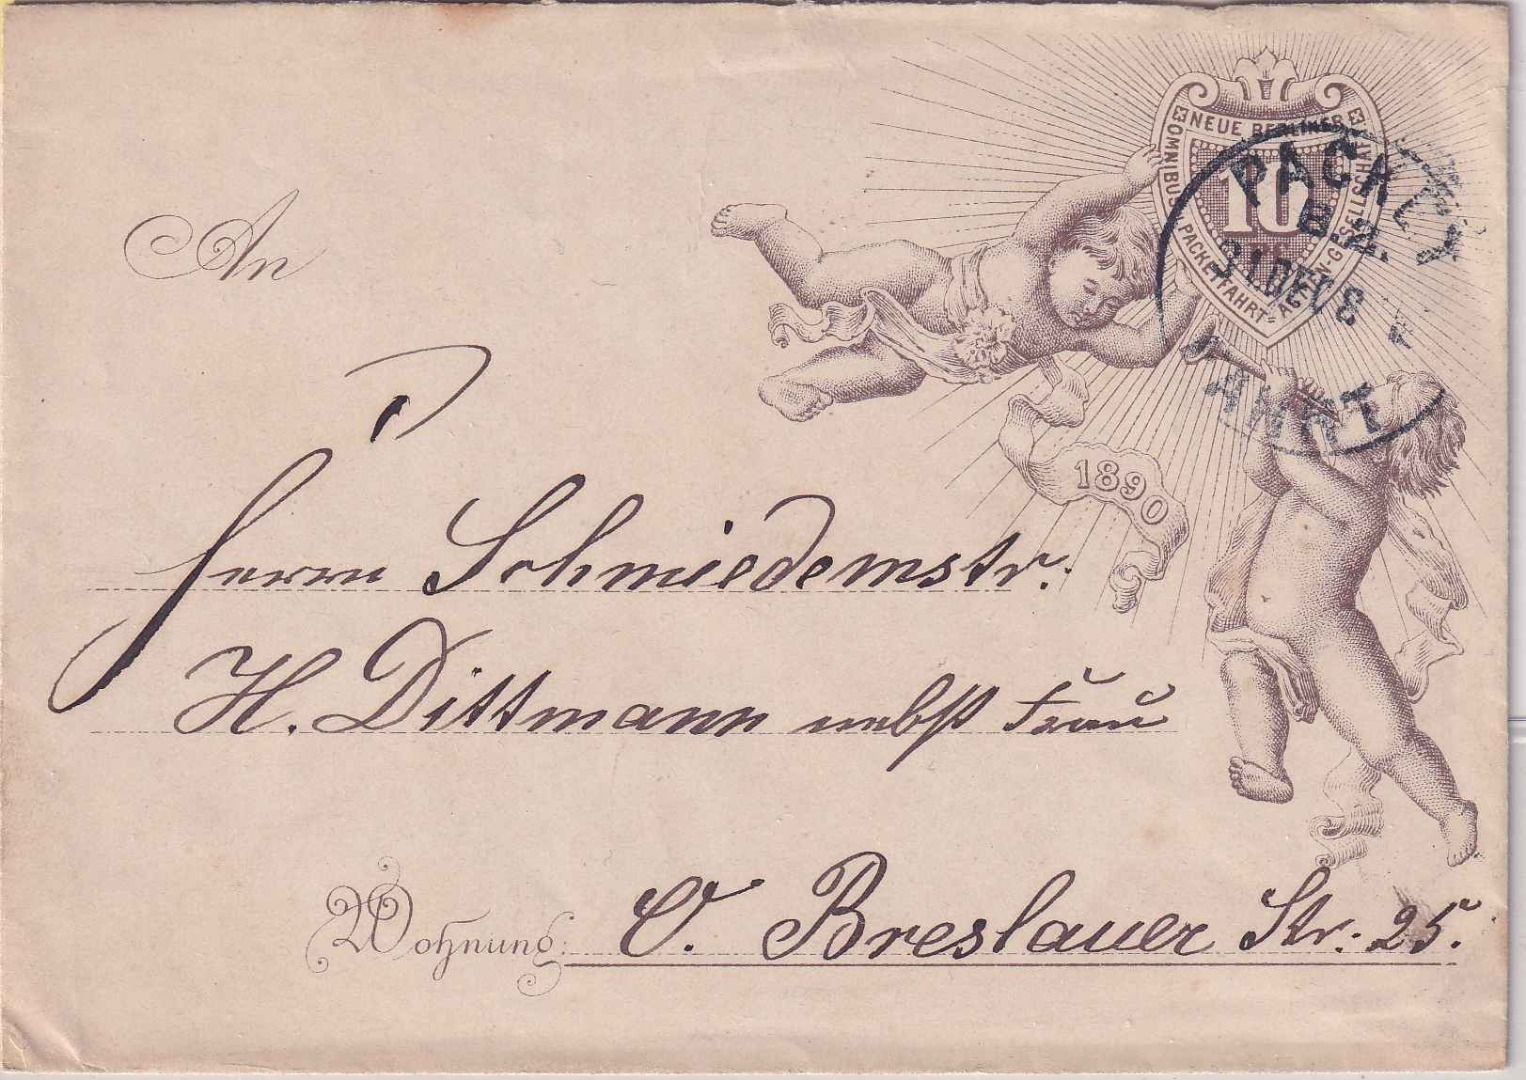 NEUE BERLINER
OMNIBUS
PACKETFAHRT-ACTIEN-GESELLSCHAFT
10
PACKET
B.2.
31DEC8
FAHRT
1890
An
Herrn Schmiedemstr.
H. Dittmann nebst Frau
Wohnung: O. Breslauer Str. 25.